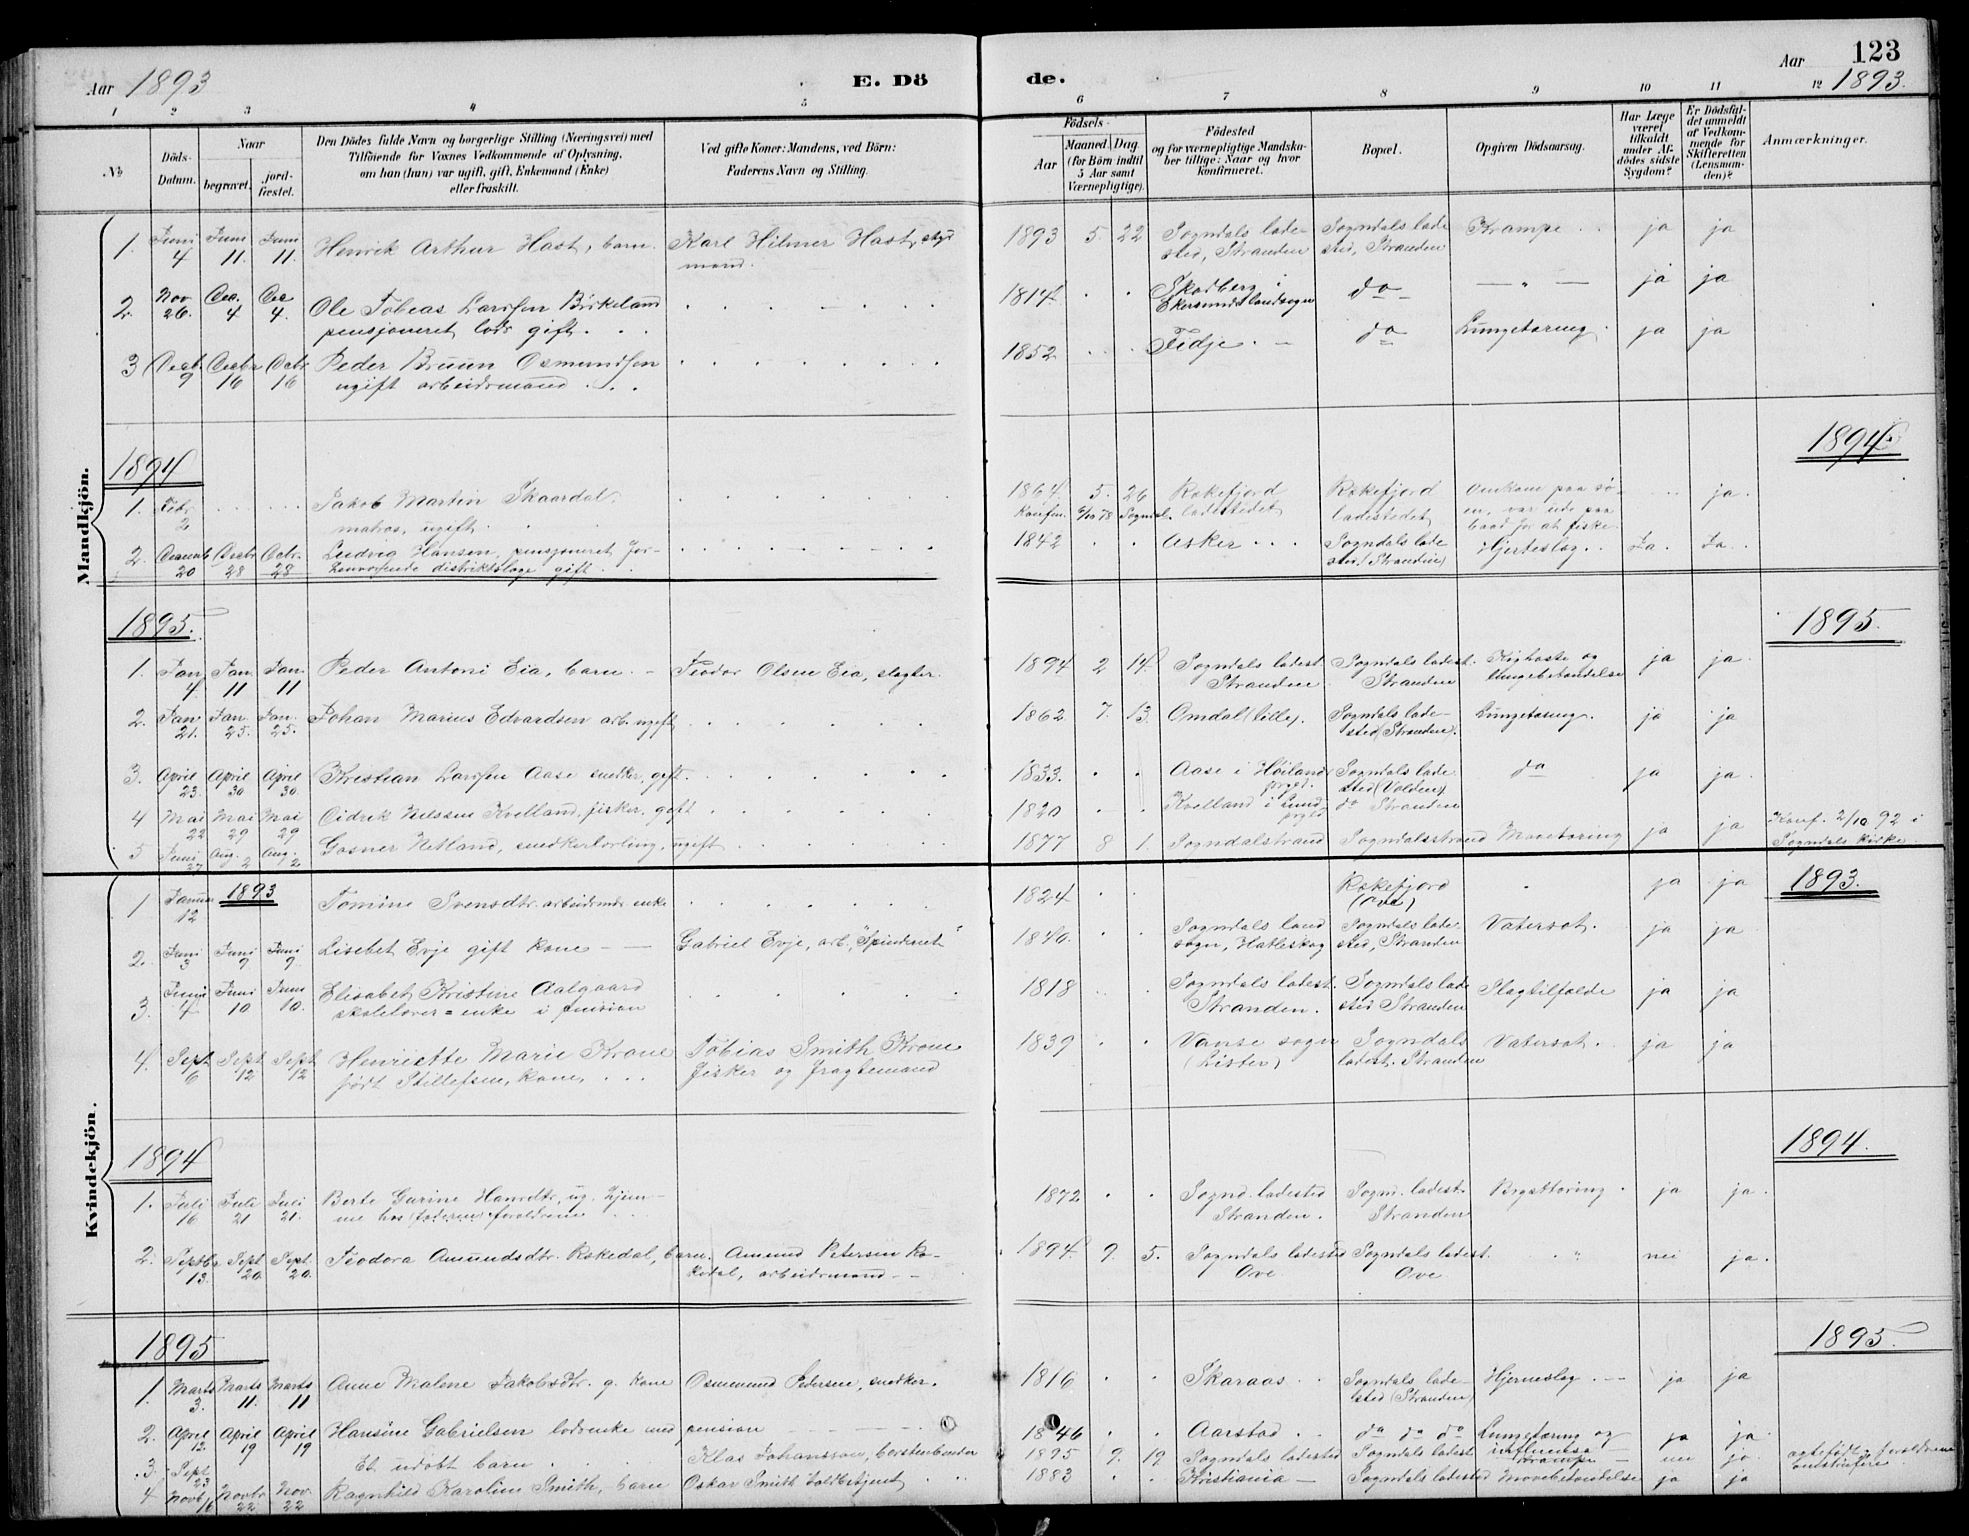 Aar 1893
E. Dö
de.
Aar 123
1893.
1 2 3 4 5
6 7 8 9 10 11 12
№
Döds-
Datum.
Naar
begravet.
jord-
fæstet.
Den Dödes fulde Navn og borgerlige Stilling (Næringsvei) med
Tilföiende for Voxnes Vedkommende af Oplysning,
om han (hun) var ugift, gift, Enkemand (Enke)
eller fraskilt.
Ved gifte Koner: Mandens, ved Börn:
Faderens Navn og Stilling.
Födsels-
Aar
Maaned. Dag.
(for Börn indtil
5 Aar samt
Værnepligtige).
Födested
og for værnepligtige Mandska-
ber tillige: Naar og hvor
konfirmeret.
Bopæl.
Opgiven Dödsaarsag.
Har Læge
været
tilkaldt
under Af-
dödes sidste
Sygdom?
Er Dödsfal-
det anmeldt
af Vedkom-
mende for
Skifteretten
(Lensman-
den)?
Anmærkninger.
Mandkjön.
1. Juni 4 Juni 11. Juni 11. Henrik Arthur Hast, barn. Karl Hilmer Hast, styr
mand.
1893 5. 22 Sogndals lade-
sted, Stranden
Sogndals lade
sted, Stranden
Krampe ja ja
2. Nov 26. Dec. 4 Dec 4. Ole Tobias Larssen Birkeland
pensjoneret lods gift.
1814 Skadberg i
Ekersunds landsogn
do — " — ja ja
3 Decbr. 9 Decbr 16 Decbr 16 Peder Bruun Osmundsen
ugift arbeidsmand
1852 Fidje do Lungetæring ja ja
1894
1894
1. Febr. 2 Jakob Martin Skaardal.
matros, ugift
1864. 5. 26 Rekefjord
Konfirm. 6/10 78 Sogndal. ladestedet
Rekefjord
ladestedet
Omkom paa sø-
en, var ude paa
baad for at fiske
ja.
2. Decemb 20 Decbr 28 Decbr. 28 Ludvig Hansen, pensjoneret for-
henværende distriktslæge gift
1842 Asker Sogndals lade
sted (Stranden)
Hjerteslag Ja. Ja.
1895.
1895.
1. Jan 4 Jan 11 Jan. 11 Peder Antoni Eia, barn. Teodor Olsen Eia, slagter.
1894 2 14. Sogndals ladest.
Stranden
Sogndals ladest.
Stranden
Kighoste og
lungebetændelse
ja ja.
2. Jan 21. Jan. 25. Jan. 25. Johan Marius Edvardsen arb. ugift
1862. 7. 13. Omdal (lille). Sogndals lade-
sted (Stranden).
Lungetæring. ja ja
3. April 23. April 30 April 30. Kristian Larssen Aase snedker, gift.
1833. Aase i Høilands
prgjd.
Sogndals lade
sted (Volden)
do ja ja.
4 Mai 22 Mai 29 Mai 29 Didrik Nilssen Kvelland, fisker, gift
1820 Kvelland i Lund
prgjd
do Stranden
5 Juni 27 Aug. 2 Aug. 2 Gasner Netland, snedkerlærling, ugift
1877 8 1. Sogndalstrand Sogndalsstrand Mavetæring ja ja Konf. 2/10 92 i
Sogndals kirke.
Kvindekjön.
1893
1893.
1 Januar 12 Tomine Svensdtr. arbeidsmds enke
1824 Rekefjord
(Ove)
ja ja
2. Juni 3 Juni 9 Juni 9. Lisebet Evje gift kone Gabriel Evje, arb. "Spinderiet"
1840. Sogndals land
sogn, Hatleskog
Sogndals lade
sted, Stranden
Vatersot. ja ja
3. Juni 4 Juni 10. Juni 10. Elisabet Kristine Aalgaard
skolelærer=enke i pension
1818 Sogndals ladest.
Stranden.
Sogndals lade
sted Stranden
Slagtilfælde ja ja
4. Sept 6 Sept 12 Sept 12 Henriette Marie Krone
født Stillefsen, kone,
Tobias Smith Krone
fisker og fragtemand
1839 Vanse sogn
(Lister)
Sogndals
ladest. Stranden
Vatersot. ja ja
1894
1894.
1. Juli 16 Juli 21 Juli 21. Berte Gurine Hansdtr, ug. hjem-
me hos (faderen) forældrene
1872 Sognd. ladested
Stranden.
Sogn. ladest.
Stranden
Brysttæring ja ja.
2. Septbr 13. Sept 20. Sept. 20. Teodora Amundsdtr. Rekedal, barn. Amund Petersen Re-
kedal, arbeidsmand
1894. 9. 5. Sogndals ladested
Ove
Sogndals ladest.
Ove
" nei ja.
1895
1895.
1. Marts 3. Marts 11. Marts 11 Anne Malene Jakobsdtr. g. kone Osmund Pedersen, snedker.
1816 Skaraas Sogndals lade-
sted (Stranden)
Hjerneslag ja ja
2. April 12. April 19 April 19 Hansine Gabrielsen lodsenke med pension
1846 Aarstad do do do Lungetæring og
influensa
ja ja.
3. Sept 23 Et udøbt barn Klas Johansson, børstenbinder
1895 9. 19 Sogndals ladested Sogndals ladest. Krampe nei ja.
4 Novb 16 Novbr 22 Nov. 22 Ragnhild Karoline Smith, barn Oskar Smith toldbetjent
1883 Kristiania Sogndals ladested Mavebetændelse ja ja